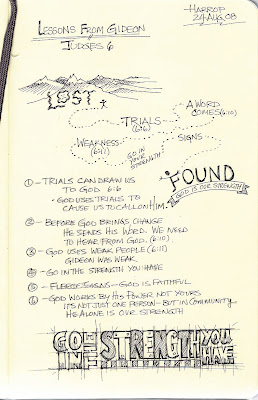 LESSONS FROM GIDEON
JUDGES 6
HARROP
24 AUG, 08
LOST
TRIALS
(6:6)
A WORD
COMES (6:10)
WEARNESS
(6:11)
SIGNS
GO IN
YOUR
STRENGTH
FOUND
GOD IS OUR STRENGTH
① – TRIALS CAN DRAW US
TO GOD 6:6
• GOD USES TRIALS TO
CAUSE US TO CALL ON HIM
② – BEFORE GOD BRINGS CHANGE
HE SENDS HIS WORD. WE NEED
TO HEAR FROM GOD. (6:10)
③ – GOD USES WEAK PEOPLE (6:11)
GIDEON WAS WEAK
④ – GO IN THE STRENGTH YOU HAVE
⑤ – FLEECE SIGNS – GOD IS FAITHFUL
⑥ – GOD WORKS BY HIS POWER NOT YOURS
IT'S NOT JUST ONE PERSON – BUT IN COMMUNITY
HE ALONE IS OUR STRENGTH
GO IN THE STRENGTH YOU HAVE